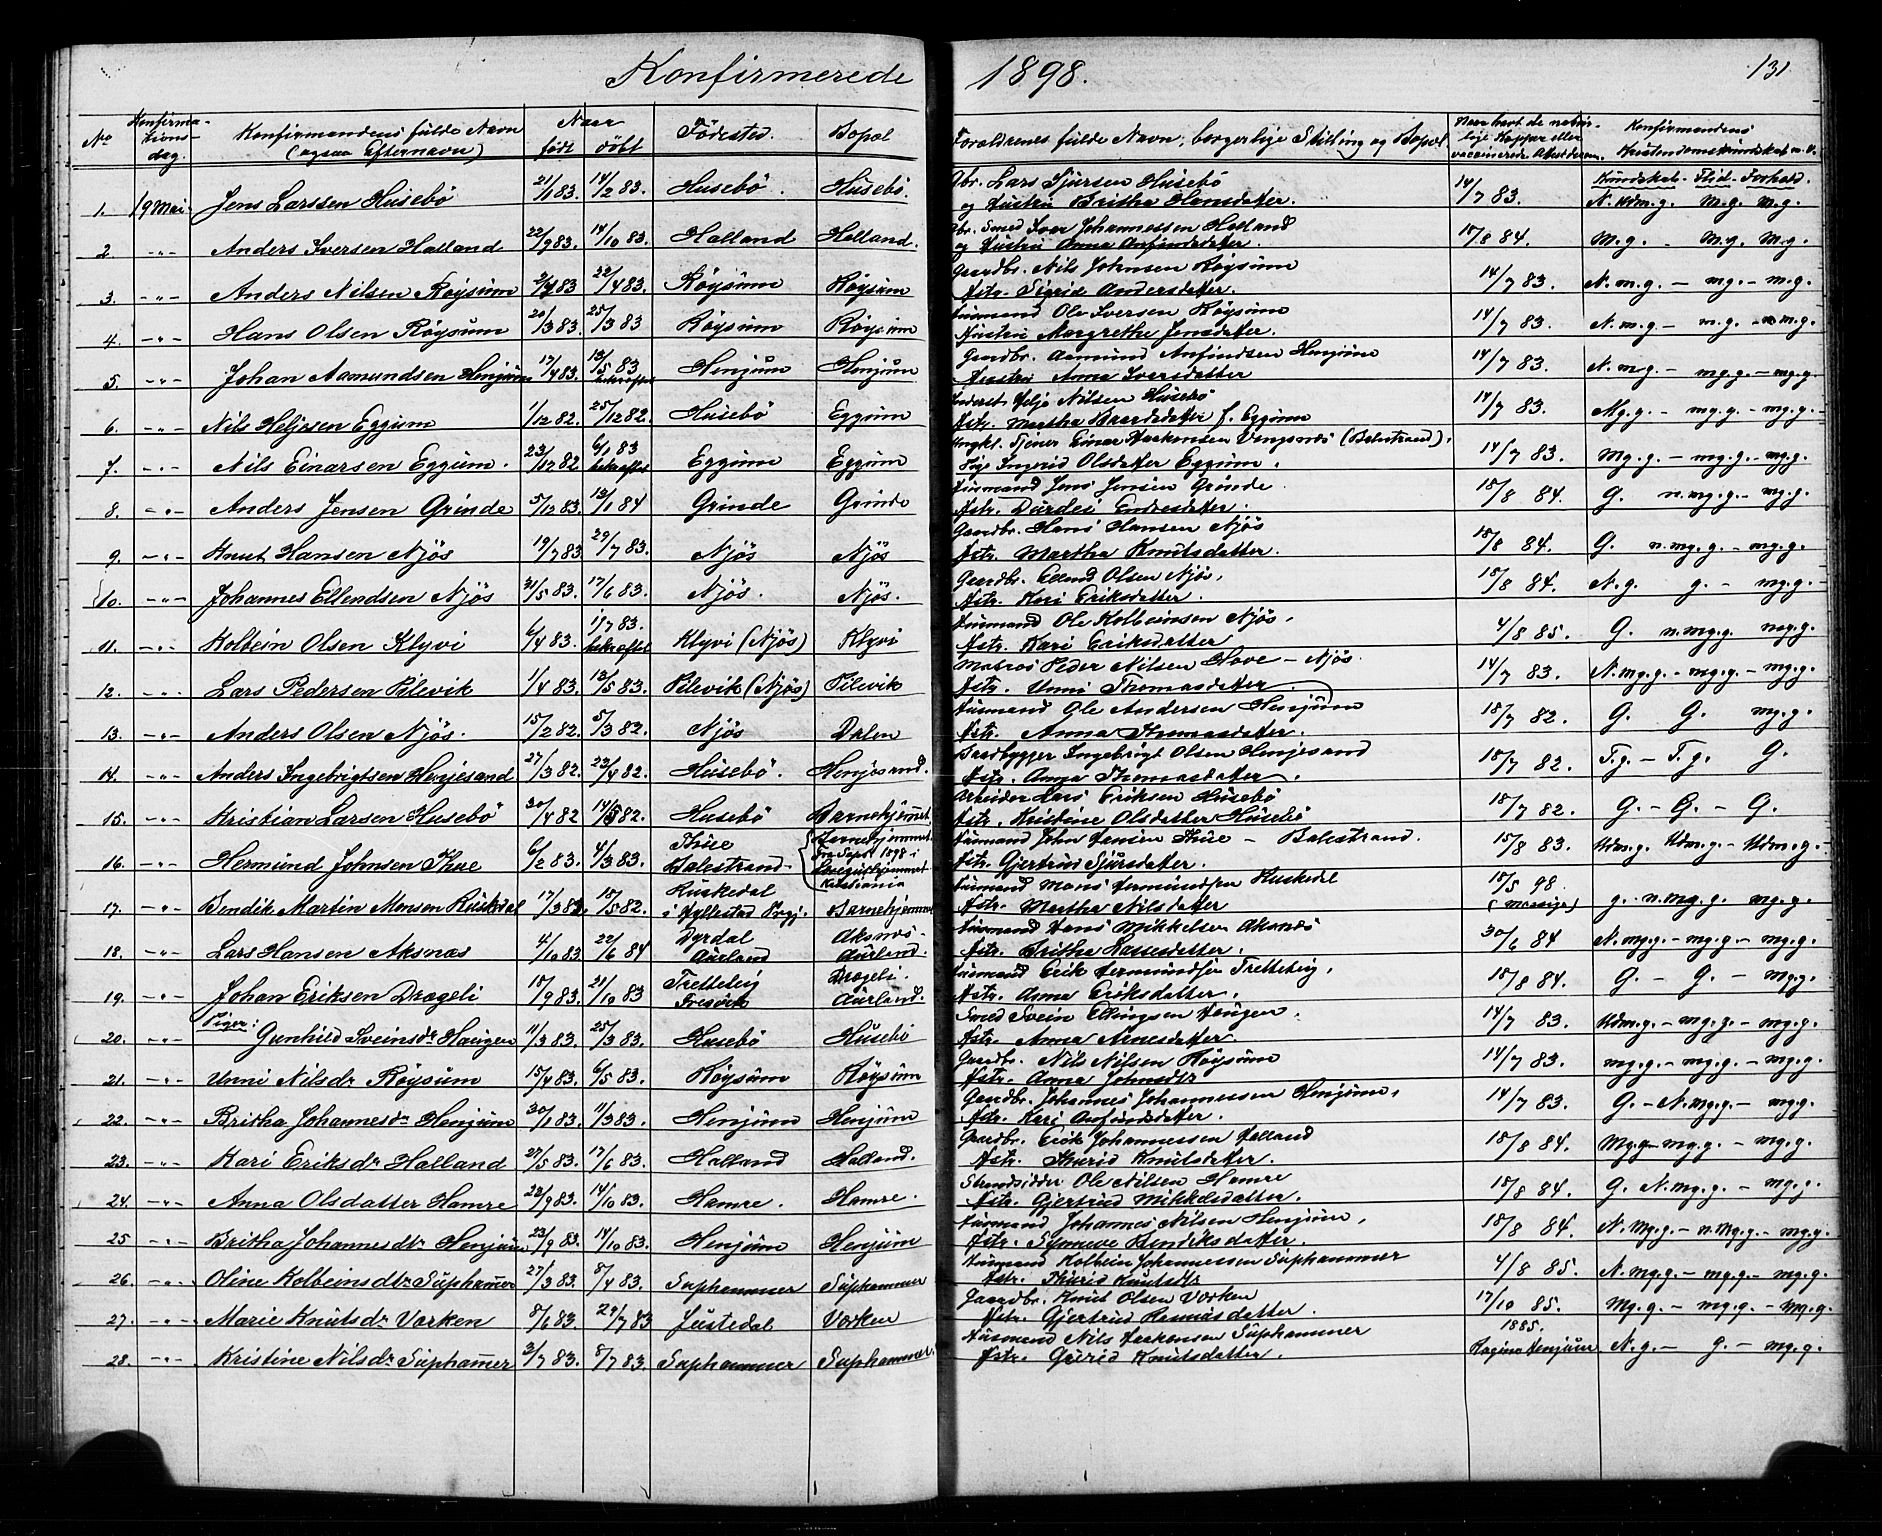 Konfirmerede 1898. 131
No Konfirmations-dag. Konfirmandens fulde Navn (ogsaa Efternavn) Naar født døbt Fødested. Bopæl Forældrenes fulde Navn, borgerlige Stilling og Bopæl. Konfirmandens Kristendomskundskab m.v.
Kundskab - Flid - Forhold.
1. 19 Mai Jens Larssen Husebö 21/1 83. 14/2 83. Husebö. Husebö. Gbr. Lars Sjursen Husebö 14/7 83. N. Udm.g. M.g. M.g.
og Hustru Britha Hansdatter.
2. -"- Anders Iversen Halland 22/9 83. 14/10 83. Halland Halland. Gbr. Smed Iver Johannessen Halland 18/8 84. M.g. - M.g. M.g.
og Hustru Anna Anfindsdatter.
3. -"- Anders Nilsen Röysum 2/4 83 22/4 83. Röysum Röysum Gaardbr. Nils Johnsen Röysum 14/7 83. N.m.g. - mg. - m.g.
Hstr. Sigrid Andersdatter.
4. -"- Hans Olsen Röysum 20/3 83. 25/3 83 Röysum Röysum Husmand Ole Iversen Röysum 14/7 83. N.m.g - m.g. - m.g.
Hustru Margrethe Jensdatter.
5. -"- Johan Aamundsen Henjum 17/4 83. 13/5 83 bekræftet Henjum Henjum Gaardbr. Aamund Anfindsen Henjum 14/7 83. N.m.g - mg.g. - mg.g.
Hustru Anna Iversdatter
6. -"- Nils Heljesen Eggum 1/12 82. 25/12 82. Husebö Eggum Helje Nilsen Husebö 14/7 83. Mg.g. - mg.g. - mg.g.
Hstr. Martha Baardsdatter f. Eggum
7. -"- Nils Einarsen Eggum. 23/12 82 6/1 83 bekræftet Eggum Eggum Ungkl. Tjener Einar Haakonsen Vengsnes (Balestrand). 14/7 83. Mg.g. - mg.g. - mg.g.
Pige Ingrid Olsdatter Eggum.
8. -"- Anders Jensen Grinde 5/12 83. 13/1 84 Grinde Grinde Husmand Jens Jensen Grinde. 18/8 84. G. n.mg.g. - mg.g.
Hstr. Durdei Endresdatter.
9. -"- Knut Hansen Njös 19/7 83 29/7 83. Njös Njös Gaardbr. Hans Hansen Njös 18/8 84. G. n.mg.g. - mg.g.
Hstr. Martha Knutsdatter.
10. -"- Johannes Ellendsen Njös 31/5 83. 17/6 83. Njös. Njös. Gaardbr. Ellend Olsen Njös, 18/8 84. N.g. g. - mg.g.
Hstr. Kari Eriksdatter.
11. -"- Kolbein Olsen Klyvi 6/4 83. 1/7 83. bekræftet Klyvi (Njös) Klyvi Husmand Ole Kolbeinsen Njös, 4/8 85. G. n.mg.g. mg.g.
Hstr. Kari Eriksdatter
12. -"- Lars Pedersen Pilevik 1/4 83. 13/5 83. Pilevik (Njös) Pilevik Matros Peder Nilsen Hove - Njös. 14/7 83. N.mg.g. - mg.g. - mg.g.
Hstr. Unni Thomasdatter.
13. -"- Anders Olsen Njös. 15/2 82. 5/3 82. Njös Dalen Husmand Ole Andersen Henjum 18/7 82. G. G. mg.g.
Hstr. Anna Thomasdatter.
14. -"- Anders Ingebrigtsen Henjesand 27/3 82. 23/4 82. Husebö. Henjesand. Ingebrigt Olsen Henjesand 18/7 82. T.g. - T.g. G.
Hstr. Anna Thomasdatter.
15. -"- Kristian Larsen Husebö 30/4 82 14/5 82. Husebö Barnehjemmet. Arbeider Lars Eriksen Husebö 18/7 82. G. - G. - G.
Hstr. Kristine Olsdatter Husebö
16. -"- Hermund Johnsen Thue 6/2 83. 4/3 83. Thue Balestrand. Barnehjemmet. fra Sept. 1898 i Kristiania Husmand John Jensen Thue - Balestrand. 15/8 83. Udm.g. Udm.g. - Udm.g.
Hstr. Gjertrud Sjursdatter.
17. -"- Bendik Martin Monsen Kuskedal 17/3 82. 18/5 82. Kuskedal i Hyllestad Prgj. Barnehjemmet Husmand Mons Hermundsen Kuskedal 18/5 98. g. n.mg.g. mg.g.
Hstr. Martha Nilsdatter
18. -"- Lars Hansen Aksnæs 4/10 83. 22/6 84 Dyrdal Aurland Aksnæs - Aurland. Husmand Hans Mikkelsen Aksnæs 30/6 84 N.mg.g. - mg.g. - mg.g.
Hstr. Britha Lassesdatter.
19. -"- Johan Eriksen Drægeli 18/9 83. 21/10 83 Tretteteig Fresvik Drægeli. Aurland. Husmand Erik Hermundsen Tretteteig, 18/8 84. G - G. - mg.g.
Hstr. Anna Eriksdatter.
Piger:
20. -"- Gunhild Sveinsdr Haugen 11/3 83. 25/3 83. Husebö Husebö Smed Svein Ellingsen Haugen. 14/7 83. Udm.g. - mg.g. - mg.g.
Hstr. Anna Arnesdatter.
21. -"- Unni Nilsdr Röysum 15/4 83. 6/5 83. Röysum Röysum Gaardbr. Nils Nilsen Röysum 14/7 83. mg.g. - mg.g. - mg.g.
Hstr. Anna Johnsdtr
22. -"- Britha Johannesdr Henjum 30/1 83. 11/3 83. Henjum Henjum Gaardbr. Johannes Johannessen Henjum. 14/7 83. G - N.mg.g. - mg.g.
Hstr. Kari Anfindsdatter.
23. -"- Kari Eriksdr Halland 27/5 83. 17/6 83. Halland Halland. Gaardbr. Erik Johannessen Halland 18/8 84. Mg.g - mg.g. - mg.g.
Hstr. Thurid Knutsdatter.
24. -"- Anna Olsdatter Hamre 22/9 83. 14/10 83. Hamre. Hamre. Strandsidder Ole Nilsen Hamre 18/8 84. G. N.mg.g. - mg.g.
Hstr. Gjertrud Mikkelsdatter.
25 -"- Britha Johannesdtr Henjum 23/9 83. 14/10 83. Henjum Henjum Husmand Johannes Nilsen Henjum, 18/8 84. N.mg.g - n.mg.g. - mg.g.
Hstr. Synneve Bendiksdatter.
26. -"- Oline Kolbeinsdtr Suphammer 27/3 83. 8/4 83. Suphammer Suphammer Husmand Kolbein Johannessen Suphammer 4/8 85. N.mg.g. - mg.g. - mg.g.
Hstr. Thurid Knutsdtr
27. -"- Marie Knutsdr Vorken 8/6 83. 29/7 83 Justedal Vorken Gaardbr. Knut Olsen Vorken 17/10 85. Mg.g. - mg.g. - mg.g.
Hstr. Gjertrud Rasmusdatter.
28. -"- Kristine Nilsdr Suphammer 3/7 83. 8/7 83. Suphammer Suphammer. Husmand Nils Haakonsen Suphammer 1885. Henjum N.g. - g. - mg.g.
Hstr. Guirid Knutsdatter.